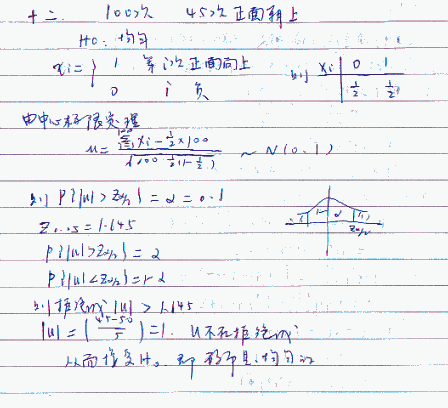 十二  100次  45次正面朝上
H0: 均匀
xi = { 1 第i次正面向上
0 i 负
则 xi 0 1
1/2 1/2
由中心极限定理
u = (Σxi - 1/2×100) / √(100·1/2(1-1/2)) ~ N(0,1)
则 P{|u|>Zα/2} = α = 0.1
Z0.05 = 1.645
P{|u|>Zα/2} = α
P{|u|<Zα/2} = 1-α
则拒绝域 |u| > 1.645
|u| = |(45-50)/5| = 1. u不在拒绝域
从而接受H0 即 是均匀的
1-α
Zα/2